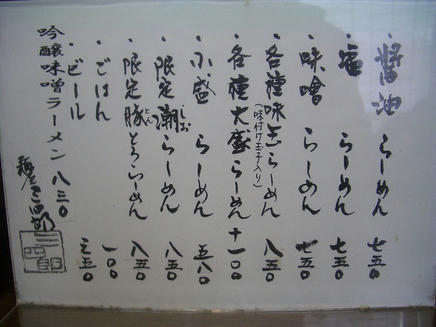 ・醤油らーめん 七五〇
・塩らーめん 七五〇
・味噌らーめん 七五〇
・各種味玉らーめん 八五〇
(味付け玉子入り)
・各種大盛らーめん 十一〇〇
・小盛らーめん 五八〇
・限定潮らーめん 八五〇
しお
・限定豚とろらーめん 八五〇
とん
・ごはん 一〇〇
・ビール 三五〇
吟醸味噌ラーメン 八三〇